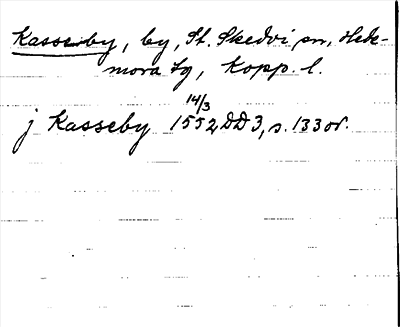 Kasserby, by, St. Skedvi sn, Hede-
mora tg, Kopp. l.
14/3
j Kasseby 1552 DD 3, s. 133 or.